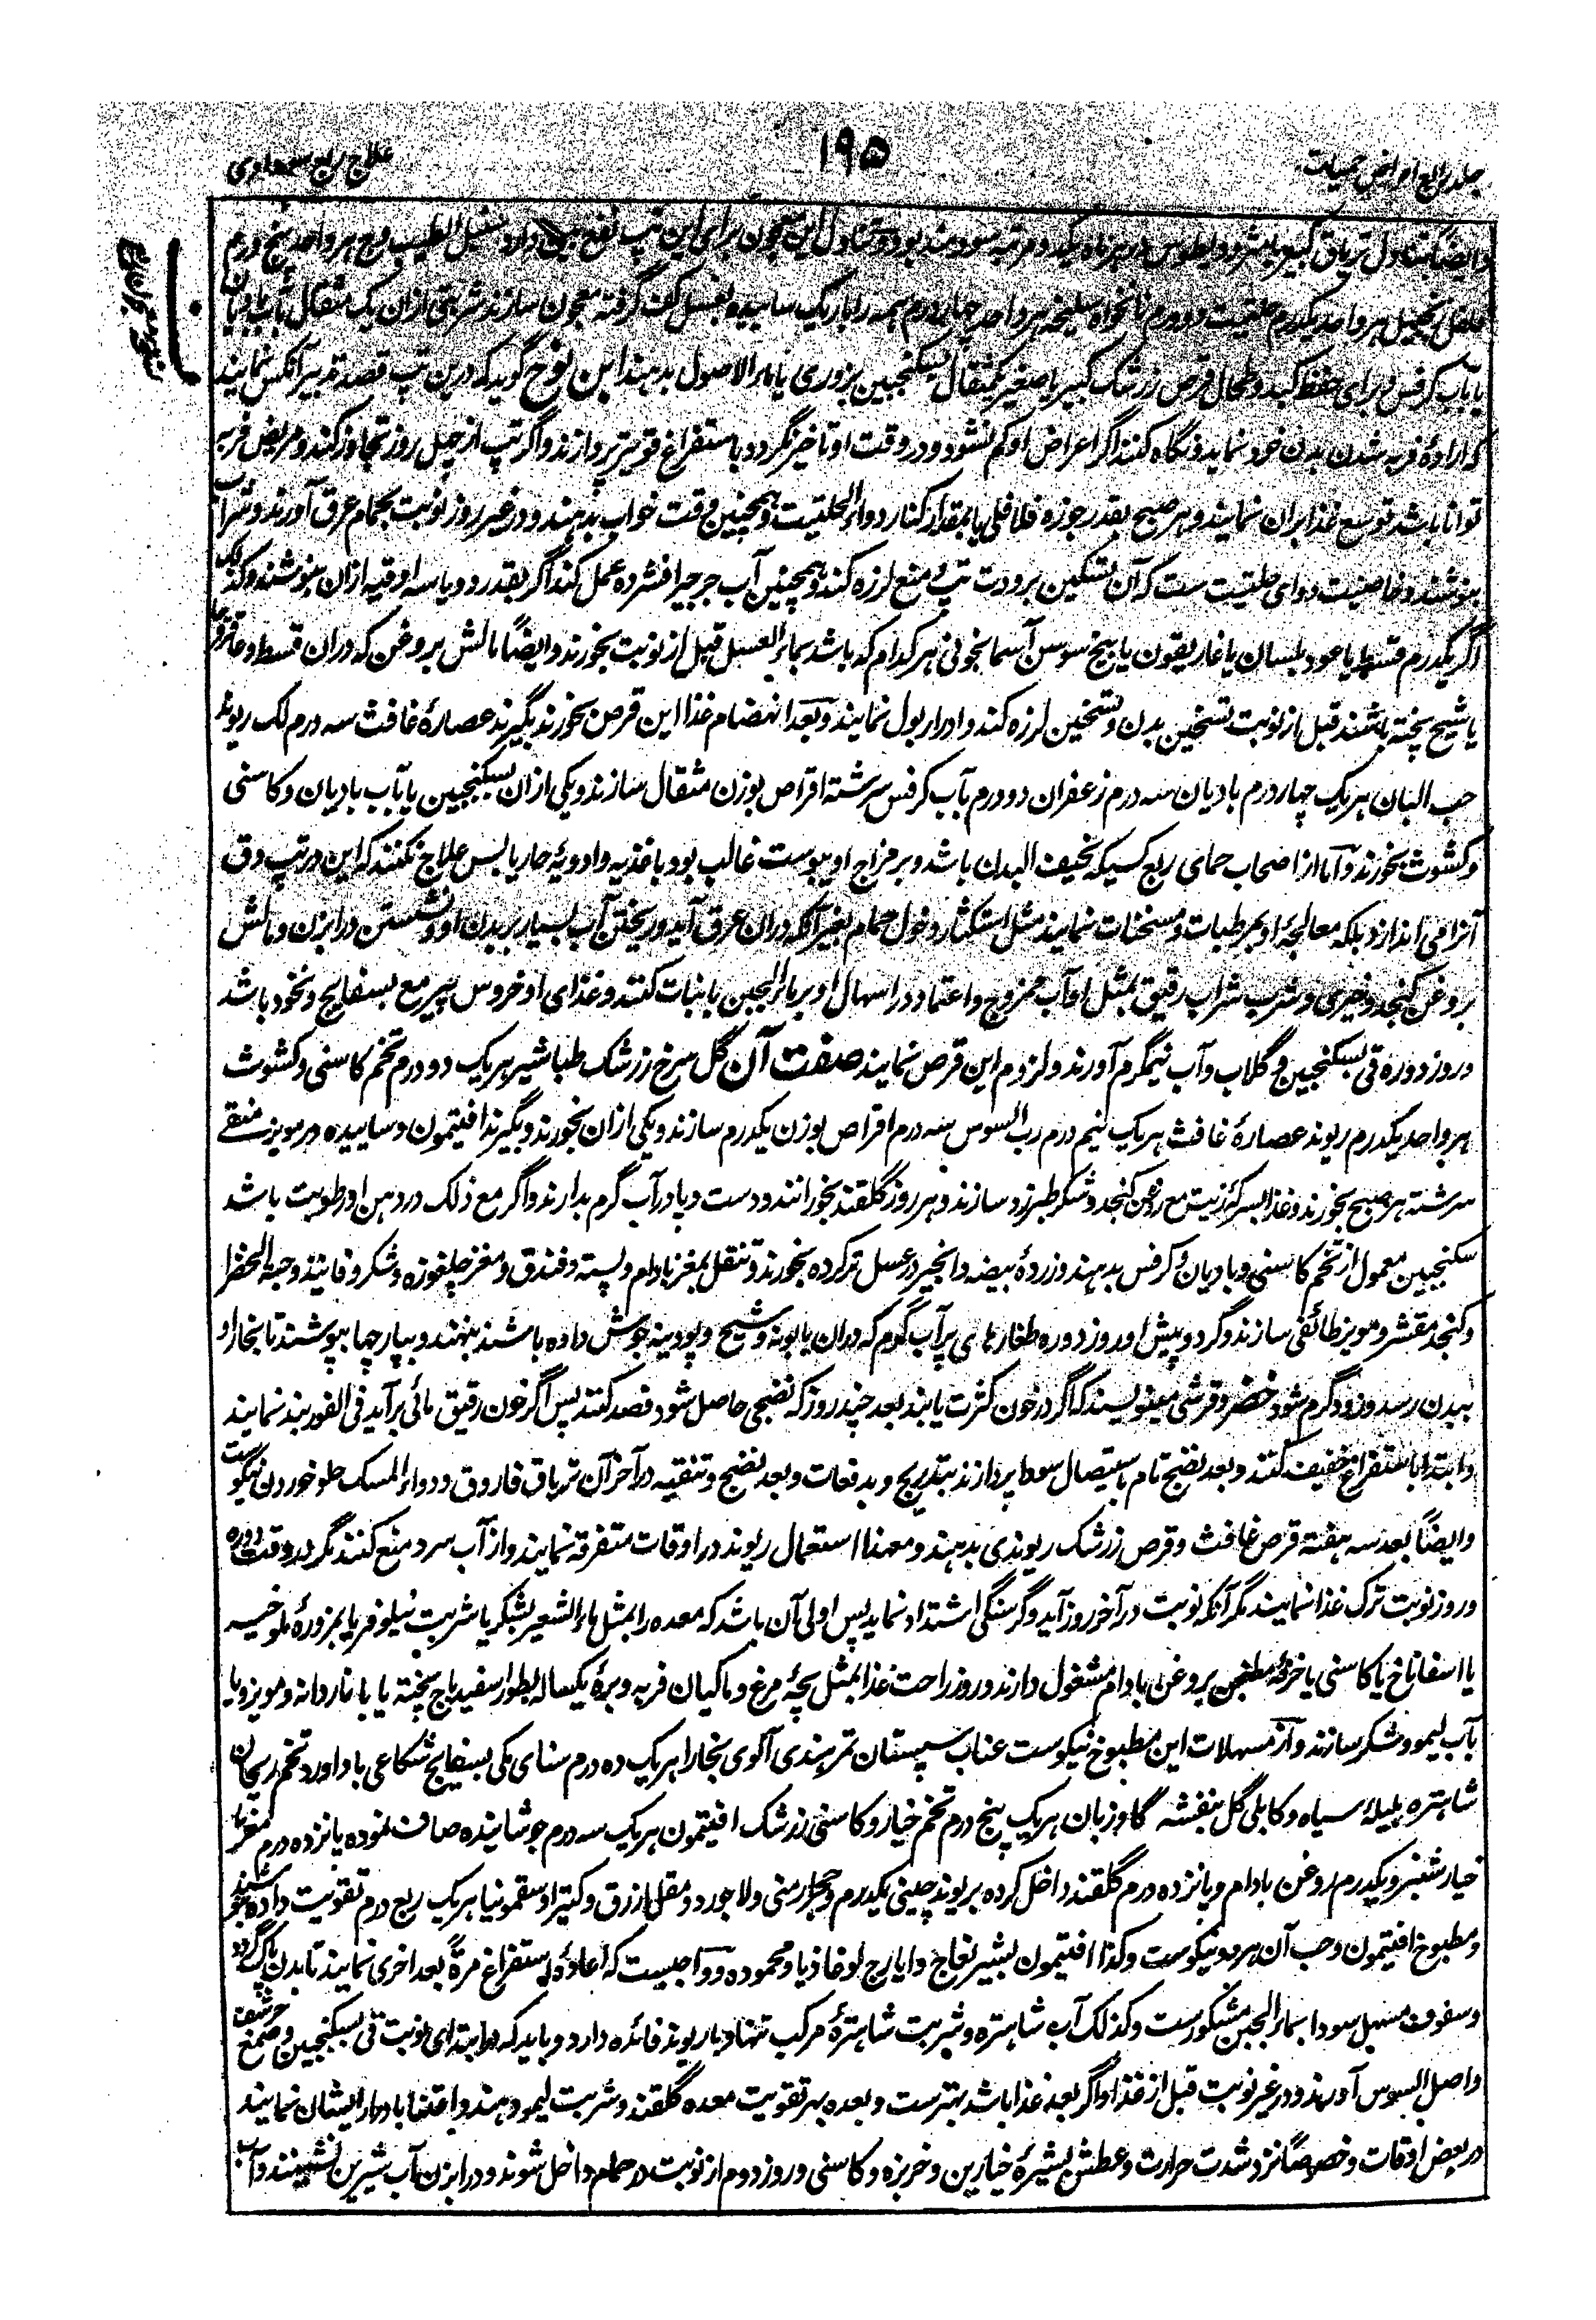 جلد رابع امراض حمیات
۱۹۵
علاج ربع سوداوی
وایضاً تناول تریاق کبیر یا مثرودیطوس در هر ماه یکد و مرتبه سودمند بود و تناول این معجون برای این تپ نفع بین دارد سنبل الطیب وج هر واحد پنج درم
فلفل زنجبیل هر واحد یکدرم حلتیت دو درم نانخواه سلیخه هر واحد چهار درم همه را باریک ساییده بعسل کف گرفته معجون سازند شربتی ازان یک مثقال بآب بادیان
یا بآب کرفس و برای حفظ کبد و طحال قرص زرشک کبیر یا صغیر یکمثقال بسکنجبین بزوری یا ماء الاصول بدهند ابن نوح گوید که درین تپ قصد تدبیر آنکس نمایند
که ارادهٔ فربه شدن بدن خود نماید و نگاه کنند اگر اعراض او کم نشود و در وقت او تاخیر نگردد باستفراغ قویتر پردازند و اگر تپ از چهل روز تجاوز کند و مریض فربه
توانا باشد توسیع غذا بران نمایند و هر صبح بقدر جوزه فلافلی یا بمقدار کنار دواء الحلتیت و همچنین وقت خواب بدهند و در غیر روز نوبت بحمام عرق آورند و شراب
بنوشند و خاصیت دوای حلتیت ست که آن تسکین برودت تپ و منع لرزه کند و همچنین آب جرجیر افشرده عمل کند اگر بقدر دو یا سه اوقیه ازان بنوشند و کذلک
اگر یکدرم قسط یا عود بلسان یا غاریقون یا بیخ سوسن آسمانجونی هر کدام که باشد بماء العسل قبل از نوبت بخورند و ایضاً مالش بروغن که دران قسط و عاقرقرحا
یا شیح پخته باشند قبل از نوبت تسخین بدن و تسخین لرزه کند و ادرار بول نمایند و بعد انهضام غذا این قرص بخورند بگیرند عصارهٔ غافث سه درم لک ریوند
حب البان هر یک چهار درم بادیان سه درم زعفران دو درم بآب کرفس سرشته اقراص بوزن مثقال سازند و یکی ازان بسکنجبین یا بآب بادیان و کاسنی
و کشوث بخورند و اما از اصحاب حمای ربع کسیکه نحیف البدن باشد و بر مزاج او یبوست غالب بود باغذیه و ادویهٔ حار یابس علاج نکنند که این در تپ دق
آنرا می اندازد بلکه معالجهٔ او بمرطبات و مسخنات نمایند مثل استکثار دخول حمام بغیر آنکه دران عرق آید و ریختن آب بسیار بر بدن او و نشستن در ابزن و مالش
بروغن کنجد و خیری و شرب شراب رقیق بمثل او آب ممزوج و اعتماد در اسهال او بر ماء الجبن یا نبات کنند و غذای او خروس پیر مع بسفایج و نخود باشد
و روز دوره قی بسکنجبین و گلاب و آب نیمگرم آورند و لزوم این قرص نمایند صفت آن گل سرخ زرشک طباشیر هر یک دو درم تخم کاسنی و کشوث
هر واحد یکدرم ریوند عصارهٔ غافث هر یک نیم درم رب السوس سه درم اقراص بوزن یکدرم سازند و یکی ازان بخورند و بگیرند افتیمون و ساییده در مویز منقے
سرشته هر صبح بخورند و غذا بسرکه زیت مع روغن کنجد و شکر طبرزد سازند و هر روز گلقند بخورانند و دست و پا در آب گرم بدارند و اگر مع ذلک در دهن او رطوبت باشد
سکنجبین معمول از تخم کاسنی و بادیان و کرفس بدهند و زردهٔ بیضه و انجیر در عسل تر کرده بخورند و تنقل بمغز بادام و پسته و فندق و مغز چلغوزه و شکر و فانیذ و حبة الخضرا
و کنجد مقشر و مویز طائفی سازند و گرد و پیش او روز دوره طغارهای پر آب گرم که دران بابونه و شیح و پودینه جوش داده باشند بنهند و بپارچها بپوشند تا بخار او
ببدن رسد و زود گرم شود خضر و قرشی مینویسند که اگر در خون کثرت یابند بعد چند روز که نضجی حاصل شود فصد کنند پس اگر خون رقیق مائی برآید فی الفور بند نمایند
و ابتدا باستفراغ خفیف کنند و بعد نضج تام باستیصال سودا پردازند بتدریج و بدفعات و بعد نضج و تنقیه در آخر آن تریاق فاروق و دواء المسک حلو خوردن نیکوست
وایضاً بعد سه هفته قرص غافث و قرص زرشک ریوندی بدهند و معهذا استعمال ریوند در اوقات متفرقه نمایند و از آب سرد منع کنند مگر در وقت دوره
و روز نوبت ترک غذا نمایند مگر آنکه نوبت در آخر روز آید و گرسنگی اشتداد نماید پس اولی آن باشد که معده را بمثل ماء الشعیر بشکر یا شربت نیلوفر یا بمزورهٔ ملوخیه
یا اسفاناخ یا کاسنی یا خرفهٔ مطجن بروغن بادام مشغول دارند و روز راحت غذا بمثل بچهٔ مرغ و ماکیان فربه و برهٔ یکساله بطور اسفیدباج پخته یا با ناردانه و مویز و یا
بآب لیمو و شکر سازند و از مسهلات این مطبوخ نیکوست عناب سپستان تمرهندی آلوی بخارا هر یک ده درم سنای مکی بسفایج شکاعی باداورد تخم ریحان
شاهتره هلیلهٔ سیاه و کابلی گل بنفشه گاوزبان هر یک پنج درم تخم خیار و کاسنی زرشک افتیمون هر یک سه درم جوشانیده صاف نموده پانزده درم مغز
خیارشنبر و یکدرم روغن بادام و پانزده درم گلقند داخل کرده بریوند چینی یکدرم و حجر ارمنی و لاجورد و مقل ازرق و کتیرا و سقمونیا هر یک ربع درم تقویت داده بنوشند
و مطبوخ افتیمون و حب آن هر دو نیکوست و کذا افتیمون بشیر نعاج و ایارج لوغاذیا و محموده و واجبست که اعادهٔ استفراغ مرةً بعد اخری نمایند تا بدن پاک گردد
و سفوف مسهل سودا بماء الجبن مشکورست و کذلک آب شاهتره و شربت شاهترهٔ مرکب تنها و با ریوند فائده دارد و باید که در ابتدای نوبت قی بسکنجبین و صمغ حرشف
و اصل السوس آورند و در غیر نوبت قبل از غذا و اگر بعد غذا باشد بهترست و بعده بهر تقویت معده گلقند و شربت لیمو دهند و اعتنا بادرار ایشان نمایند
در بعض اوقات و خصوصاً نزد شدت حرارت و عطش بشیرهٔ خیارین و خربزه و کاسنی و روز دوم از نوبت در حمام داخل شوند و در ابزن آب شیرین نشینند و آب